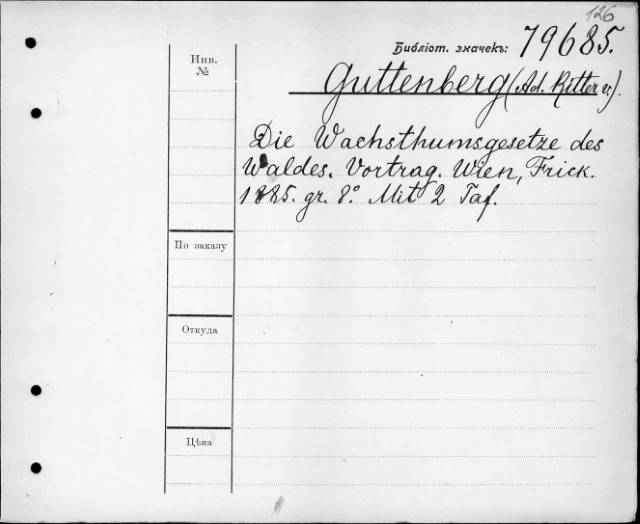 126
Библіот. значекъ: 79685.
Инв.
№
Guttenberg (Ad. Ritter v).
Die Wachsthumsgesetze des
Waldes. Vortrag. Wien, Frick.
1885. gr. 8°. Mit 2 Taf.
По заказу
Откуда
Цѣна